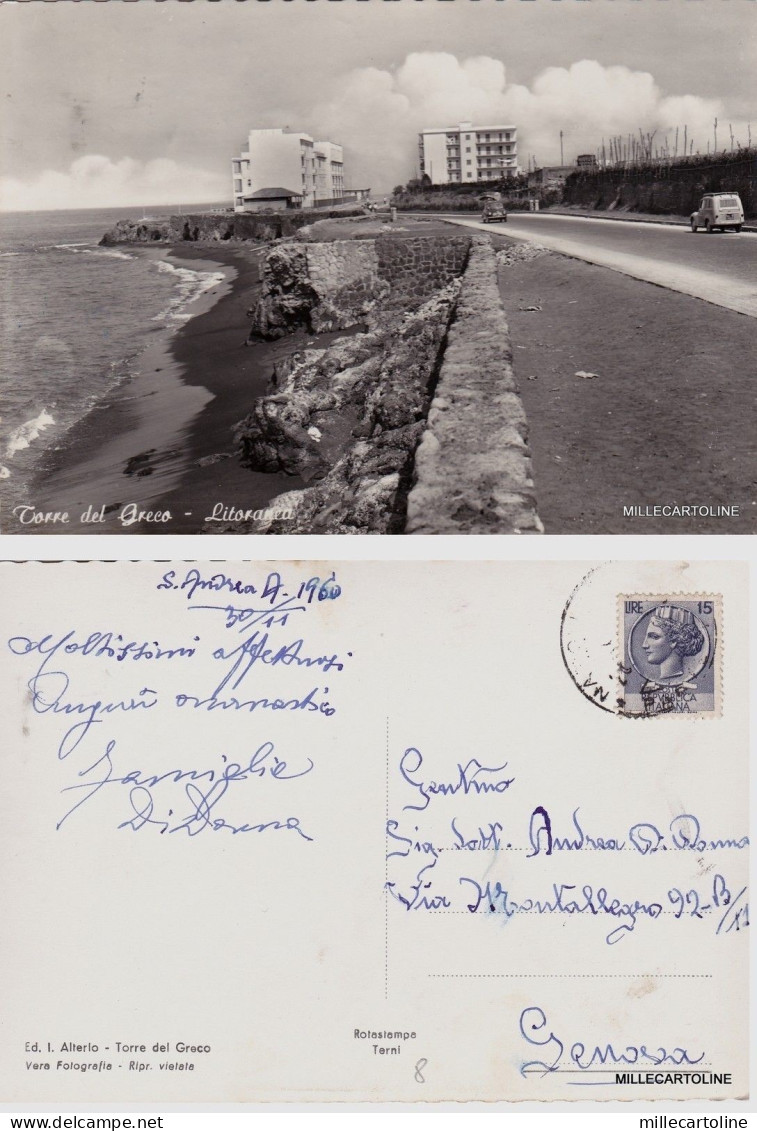 Torre del Greco - Litoranea
MILLECARTOLINE
S. Andrea A. 1960
30/11
Moltissimi affettuosi
Auguri onomastico
Famiglie
Di Donna
LIRE 15
REPVBBLICA
ITALIANA
NA
Gentmo
Sig. Dott. Andrea Di Donna
Via Montallegro 92-B/11
Genova
Ed. I. Alterio - Torre del Greco
Vera Fotografia - Ripr. vietata
Rotastampa
Terni
8
MILLECARTOLINE
millecartoline
delcampe.net